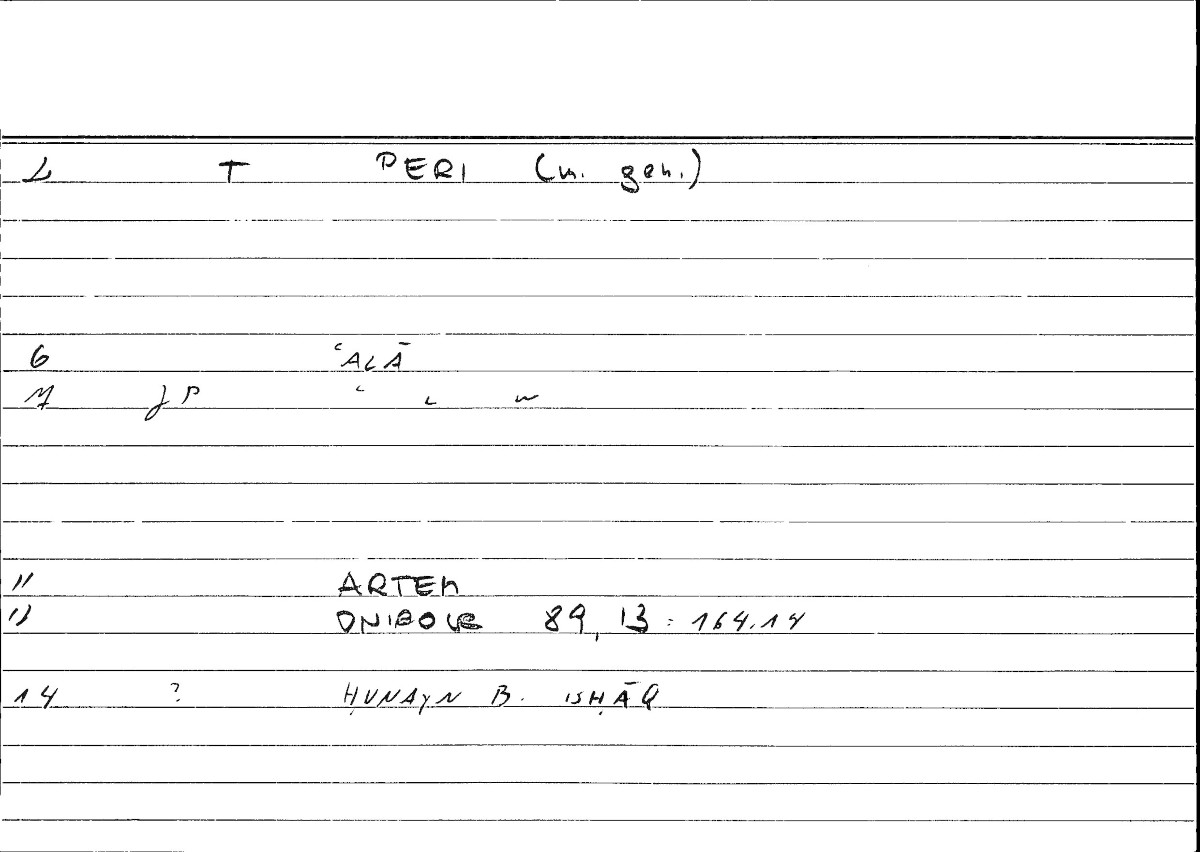 2 T PERI (m. gen.)
6 ʿALĀ
7 JP " " "
11 ARTEM
12 ONIBOLE 89,13 : 164.14
14 ? ḤUNAYN B. ISḤĀQ